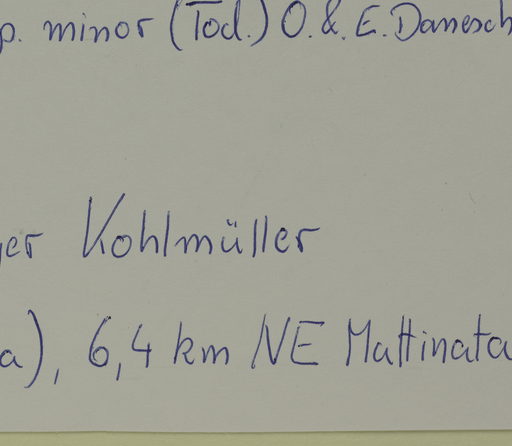 p. minor (Tod.) O. & E. Danesch
er Kohlmüller
a), 6,4 km NE Mattinata